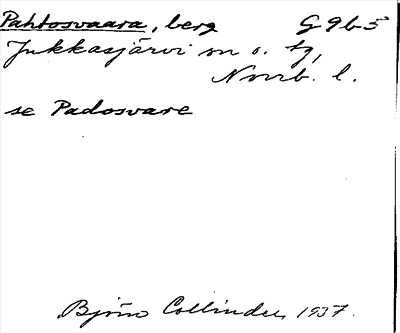 Pahtosvaara, berg G9b5
Jukkasjärvi sn o. tg,
Norrb. l.
se Padosvare
Björn Collinder 1937.